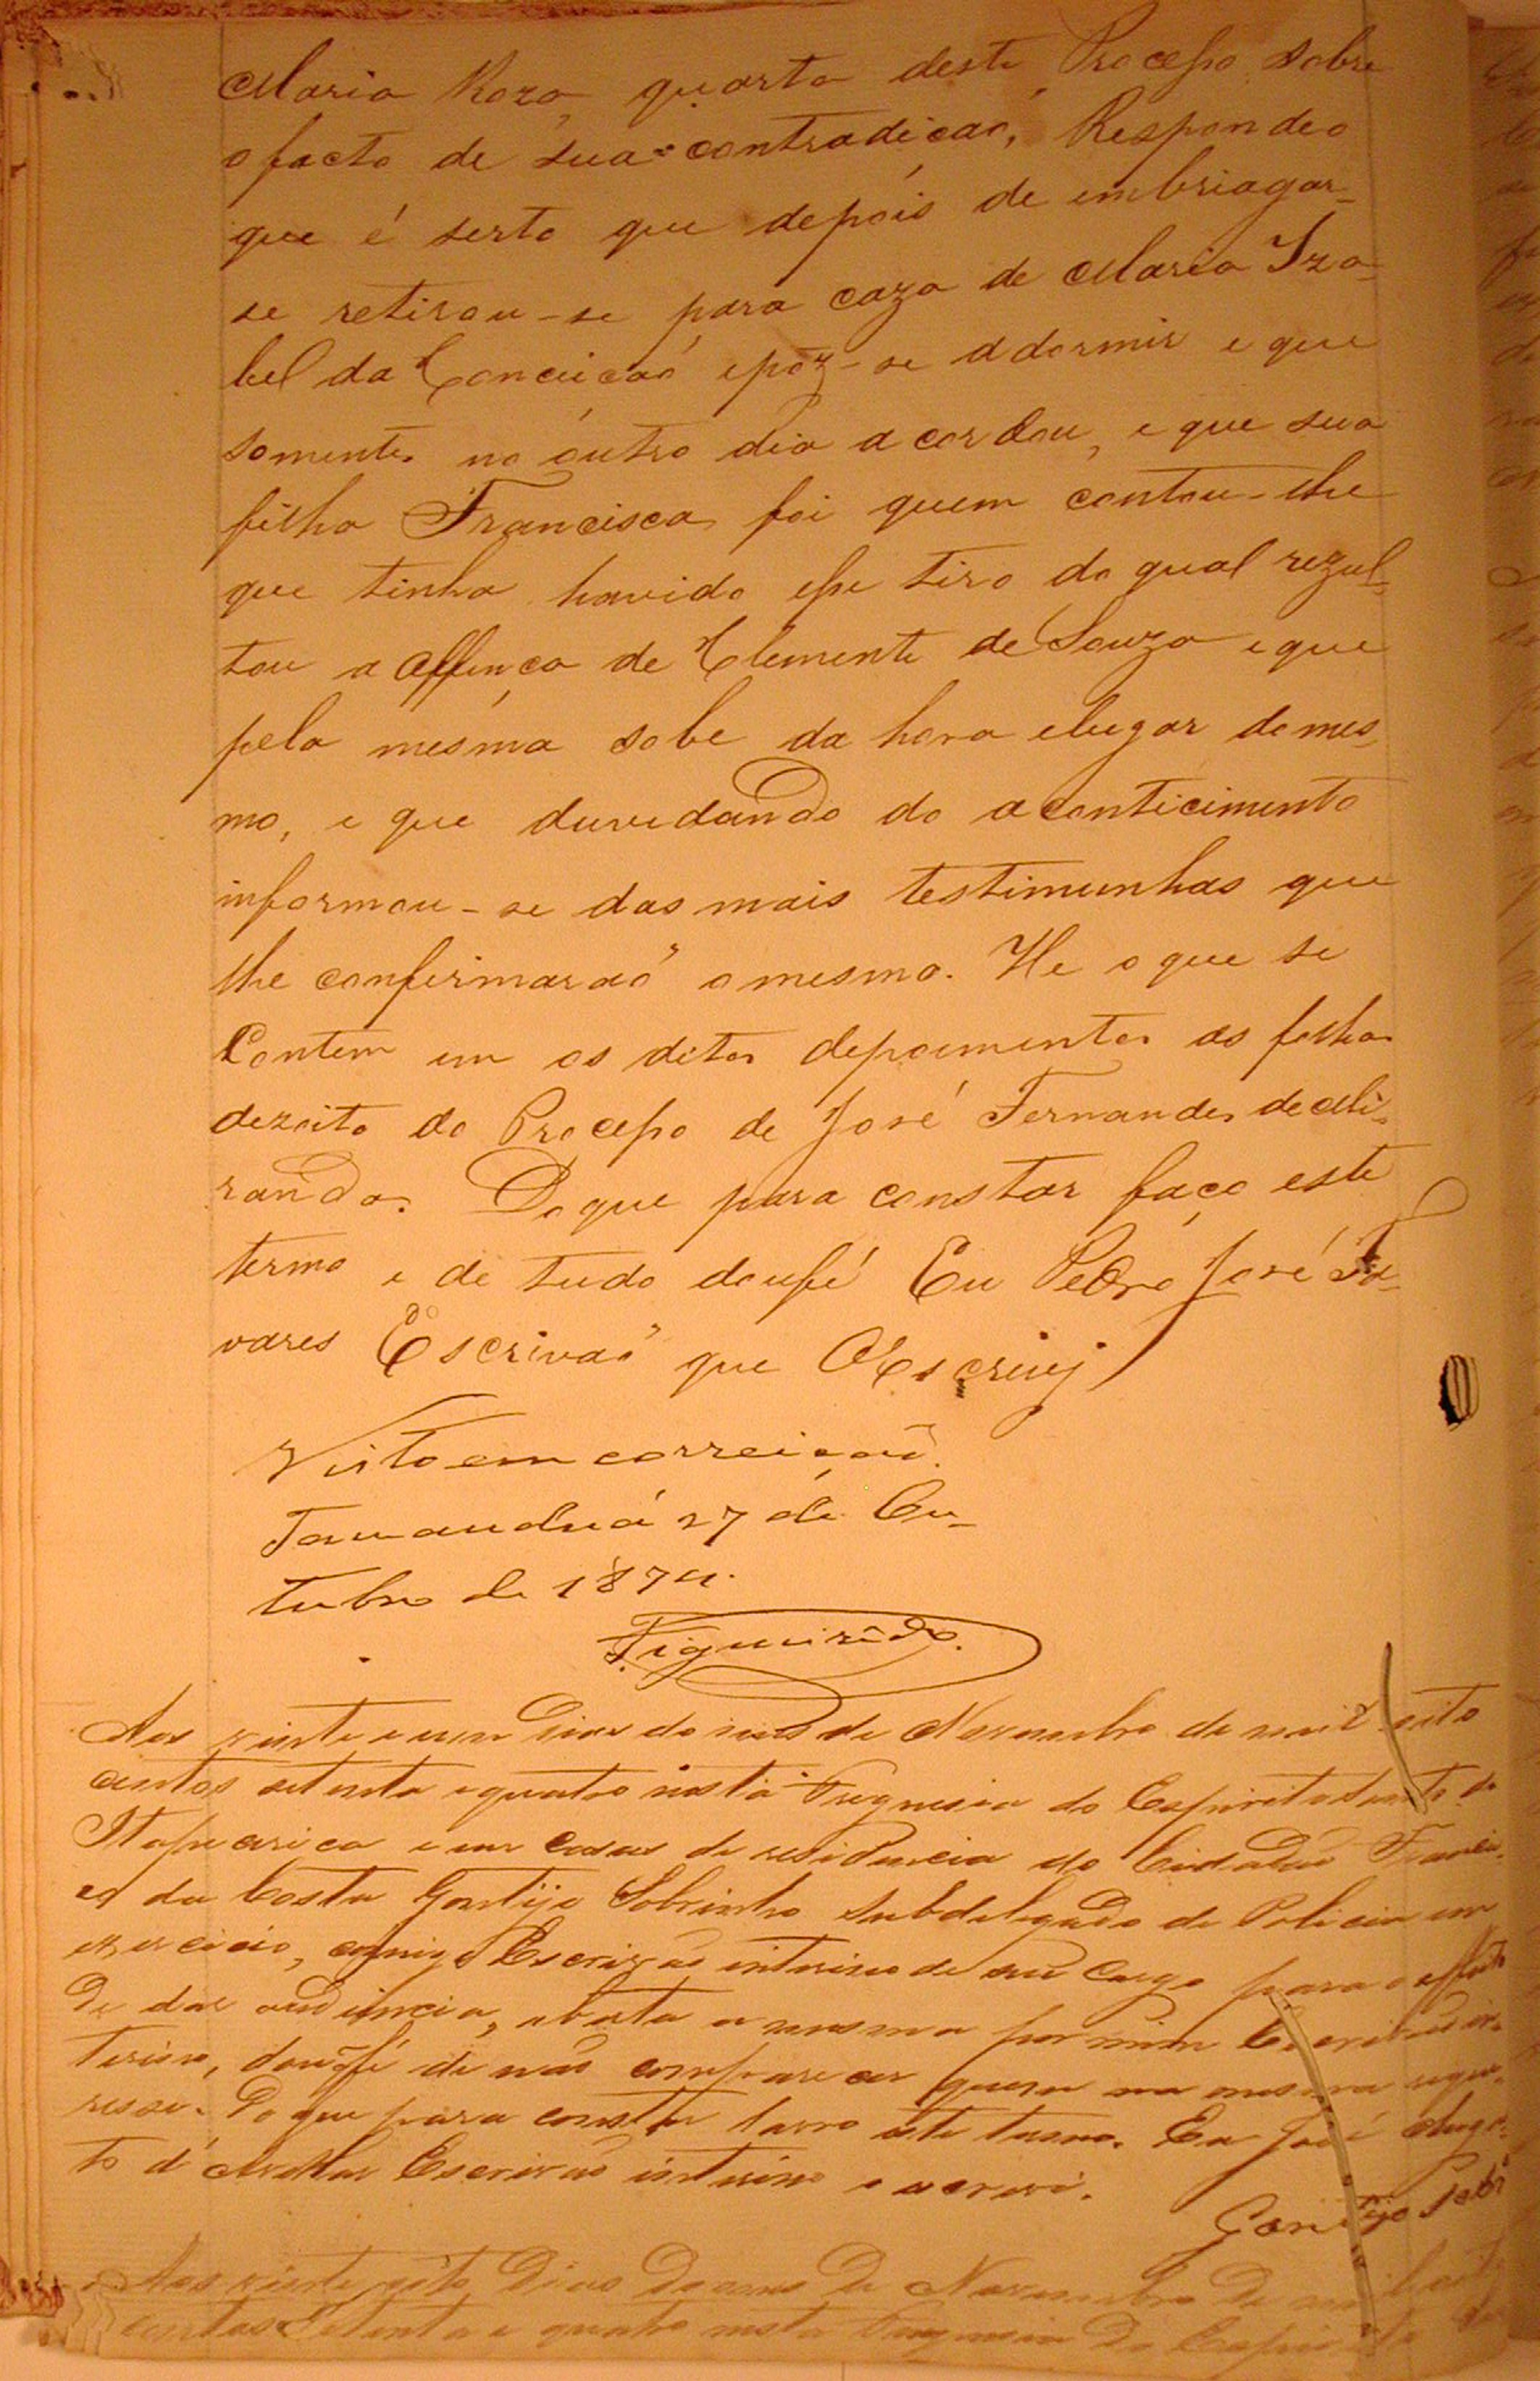 Maria Roza, quarta deste Processo sobre
o facto de sua contradicaõ, Respondeo
que é serto que depois de embriagar-
se retirou-se para caza de Maria Iza-
bel da Conceicaõ e pôz-se a dormir e que
somente no outro dia acordou, e que sua
filha Francisca foi quem contou-lhe
que tinha havido esse tiro do qual rezul-
tou a Offença de Clemente de Souza e que
pela mesma sobe da hora e lugar do mes-
mo, e que duvedando do aconticimento
informou-se das mais testimunhas que
lhe confirmaraõ o mesmo. He o que se
Contem em os ditos depoimentos as folhas
dezoito do Processo de José Fernandes de Mi-
randa. Do que para constar faço este
termo e de tudo dou fé Eu Pedro José Ta-
vares Escrivaõ que O Escrivj
Visto em correiçaõ.
Tamanduá 27 de Ou-
tubro de 1874.
Figueirêdo.
Aos vinte e um dias do mes de Novembro de mil oito
centos setenta e quatro nesta Freguesia do Espirito Santo de
Itapecerica e em casas de residencia do Cidadão Francis-
co da Costa Gontijo Sobrinho Subdelegado de Policia em
exercicio, comigo Escrivão interino de seu cargo para o effeito
de dar audiencia, aberta a mesma por mim Escrivão in-
terino, dou fé de não comparecer quem na mesma reque-
resse. Do que para constar lavro este termo. Eu José Augus-
to d' Escrivão interino o escrevi.
Gontijo Sobr
Aos vinte oito Dias Do mes De Novembro De mil oito
centos Setenta e quatro nesta Freguesia Do Espirito